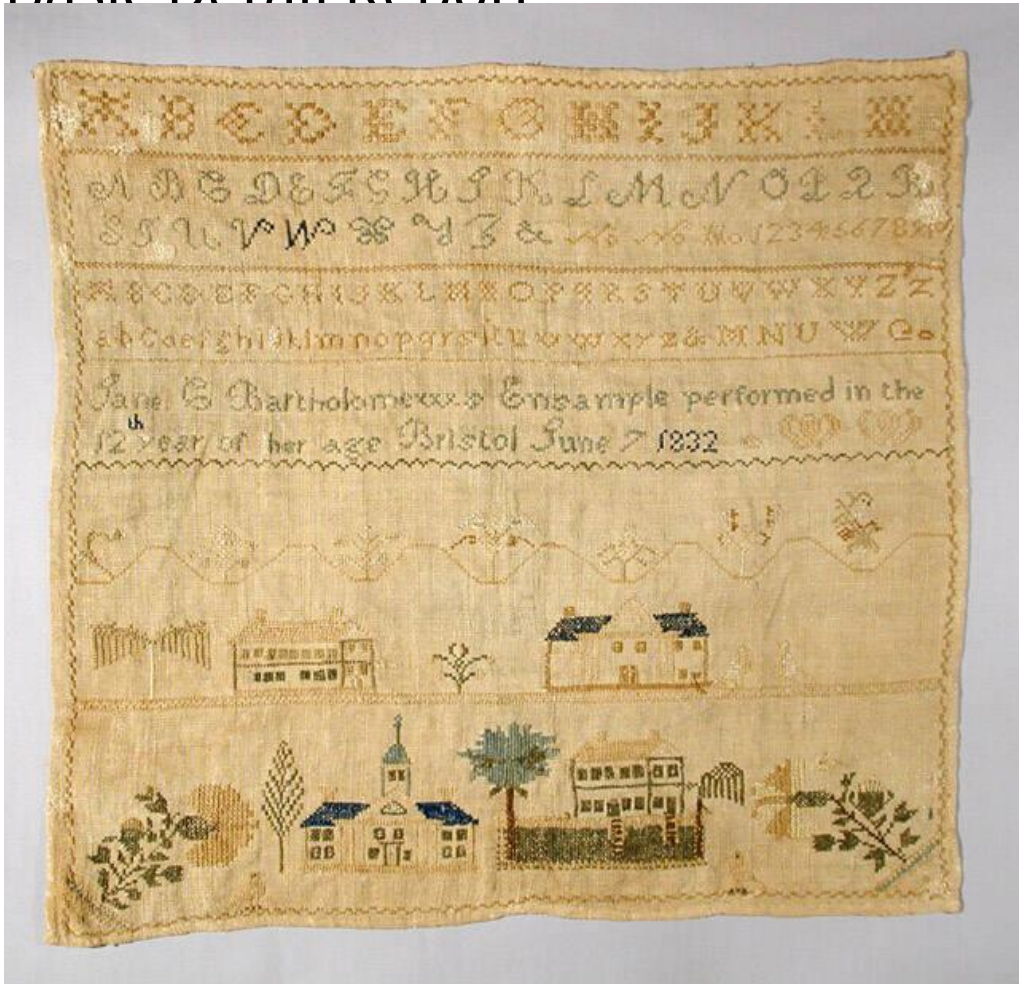 A B C D E F G H I J K L M
A B C D E F G H I K L M N O P Q R
S T U V W X Y Z & No No No 1 2 3 4 5 6 7 8 9
A B C D E F G H I J K L M N O P Q R S T U V W X Y Z Z
a b c d e f g h i j k l m n o p q r s t u v w x y z & M N U W G
Jane C Bartholomew's Ensample performed in the
12th year of her age Bristol June 7 1832